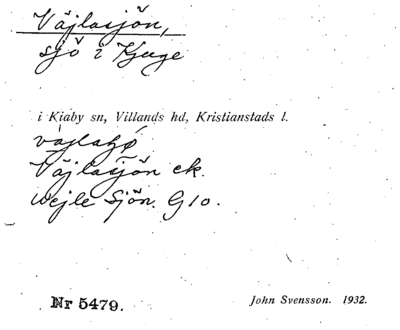 Väjlasjön,
sjö i Kjuge
i Kiaby sn, Villands hd, Kristianstads l.
Väjlasjön ek.
Wejle Sjön. G10.
Nr 5479.
John Svensson. 1932.